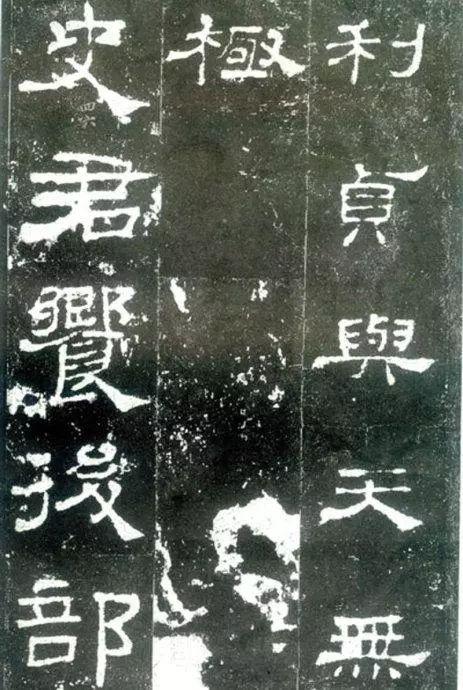 利貞與天無
極
史君饗後部